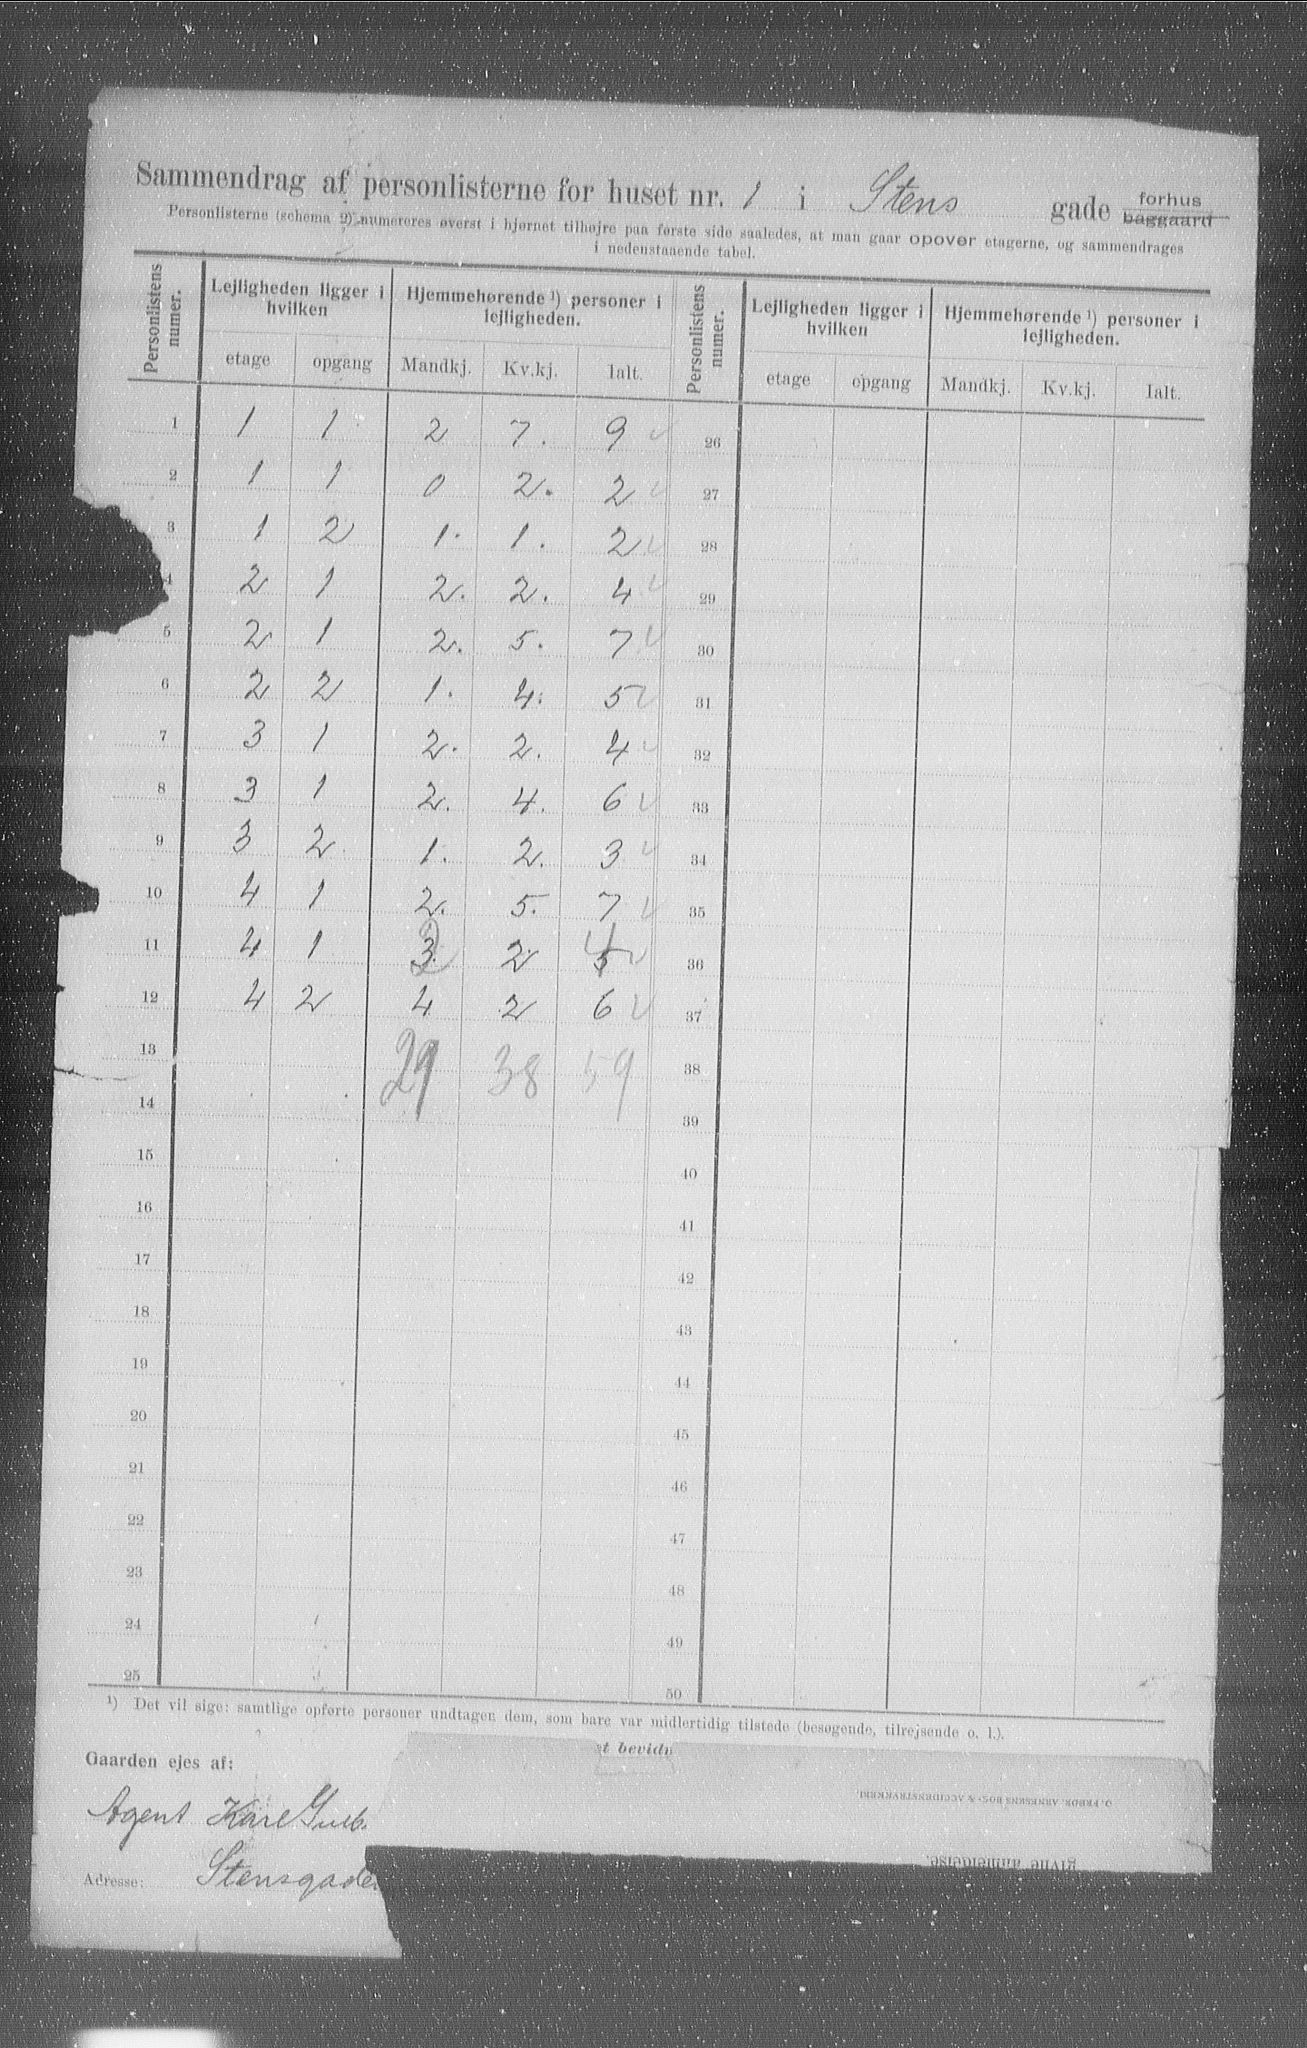 Sammendrag af personlisterne for huset nr. 1 i Stens gade forhus baggaard
Personlisterne (schema 2) numereres øverst i hjørnet tilhøjre paa første side saaledes, at man gaar opover etagerne, og sammendrages
i nedenstaaende tabel.
Personlistens numer. Lejligheden ligger i hvilken Hjemmehørende ¹) personer i lejligheden. Personlistens numer. Lejligheden ligger i hvilken Hjemmehørende ¹) personer i lejligheden.
etage opgang Mandkj. Kv.kj. Ialt. etage opgang Mandkj. Kv.kj. Ialt.
1 1 1 2 7. 9 26
2 1 1 0 2. 2 27
3 1 2 1. 1. 2 28
4 2 1 2. 2. 4 29
5 2 1 2. 5. 7 30
6 2 2 1. 4. 5 31
7 3 1 2. 2. 4 32
8 3 1 2. 4. 6 33
9 3 2 1. 2. 3 34
10 4 1 2. 5. 7 35
11 4 1 3 2 2 5 4 36
12 4 2 4 2 6 37
13 21 38 59 38
14 39
15 40
16 41
17 42
18 43
19 44
20 45
21 46
22 47
23 48
24 49
25 50
¹) Det vil sige: samtlige opførte personer undtagen dem, som bare var midlertidig tilstede (besøgende, tilrejsende o. l.).
t bevidn
Gaarden ejes af:
O. FREDR. ARNESENS BOG- & ACCIDENSTRYKKERI.
Agent Karl
givne anmeldelse.
Adresse: Stensgade